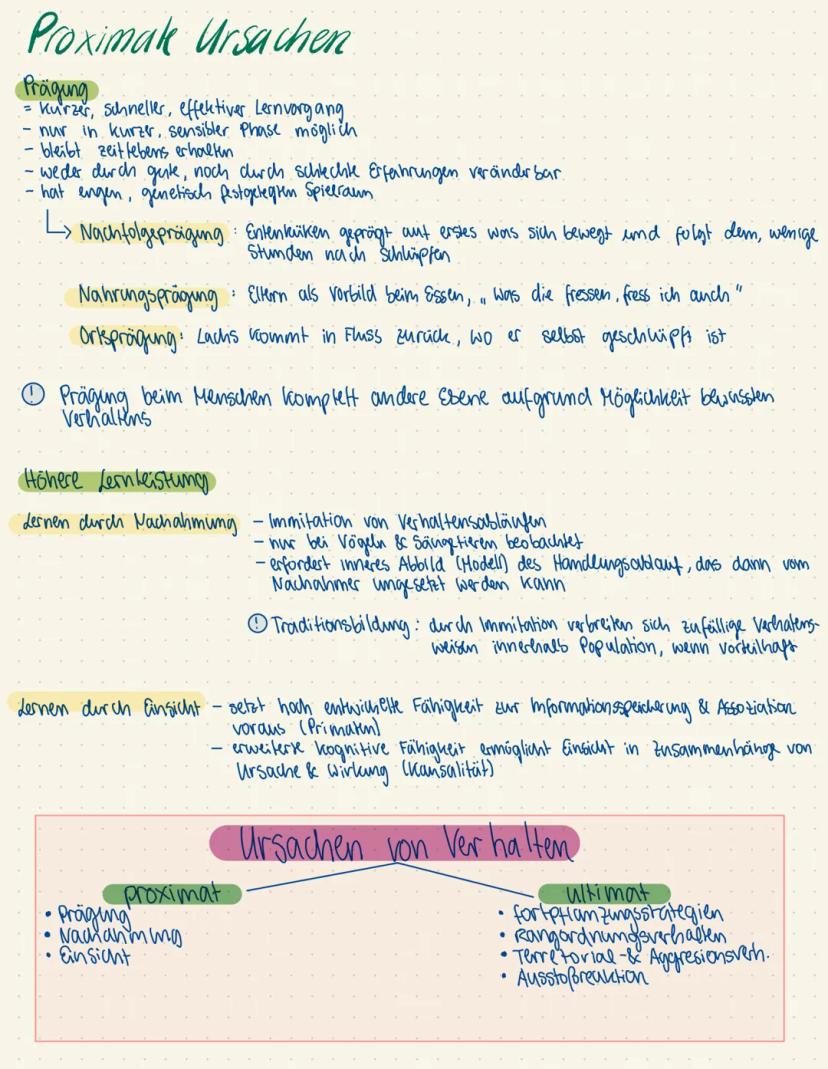 Proximate Ursachen
Prägung
= kurzer, schneller, effektiver Lernvorgang
- nur in kurzer, sensibler Phase möglich
- bleibt zeitlebens erhalten
- weder durch gute, noch durch schlechte Erfahrungen veränderbar
- hat engen, genetisch festgelegten Spielraum
↳ Nachfolgeprägung : Entenküken geprägt auf erstes was sich bewegt und folgt dem, wenige
Stunden nach Schlüpfen
Nahrungsprägung : Eltern als Vorbild beim Essen, „was die fressen, fress ich auch"
Ortsprägung: Lachs kommt in Fluss zurück, wo er selbst geschlüpft ist
! Prägung beim Menschen komplett andere Ebene aufgrund Möglichkeit bewussten
Verhaltens
Höhere Lernleistung
Lernen durch Nachahmung - Immitation von Verhaltensabläufen
- nur bei Vögeln & Säugetieren beobachtet
- erfordert inneres Abbild (Modell) des Handlungsablauf, das dann vom
Nachahmer umgesetzt werden kann
! Traditionsbildung : durch Immitation verbreiten sich zufällige Verhatens-
weisen innerhalb Population, wenn vorteilhaft
Lernen durch Einsicht - setzt hoch entwickelte Fähigkeit zur Informationsspeicherung & Assoziation
voraus (Primaten)
- erweiterte kognitive Fähigkeit ermöglicht Einsicht in Zusammenhänge von
Ursache & Wirkung (Kausalität)
Ursachen von Verhalten
proximat
ultimat
• Prägung
• Nachahmung
• Einsicht
• Fortpflanzungsstrategien
• Rangordnungsverhalten
• Terretorial- & Aggresionsverh.
• Ausstoßreaktion